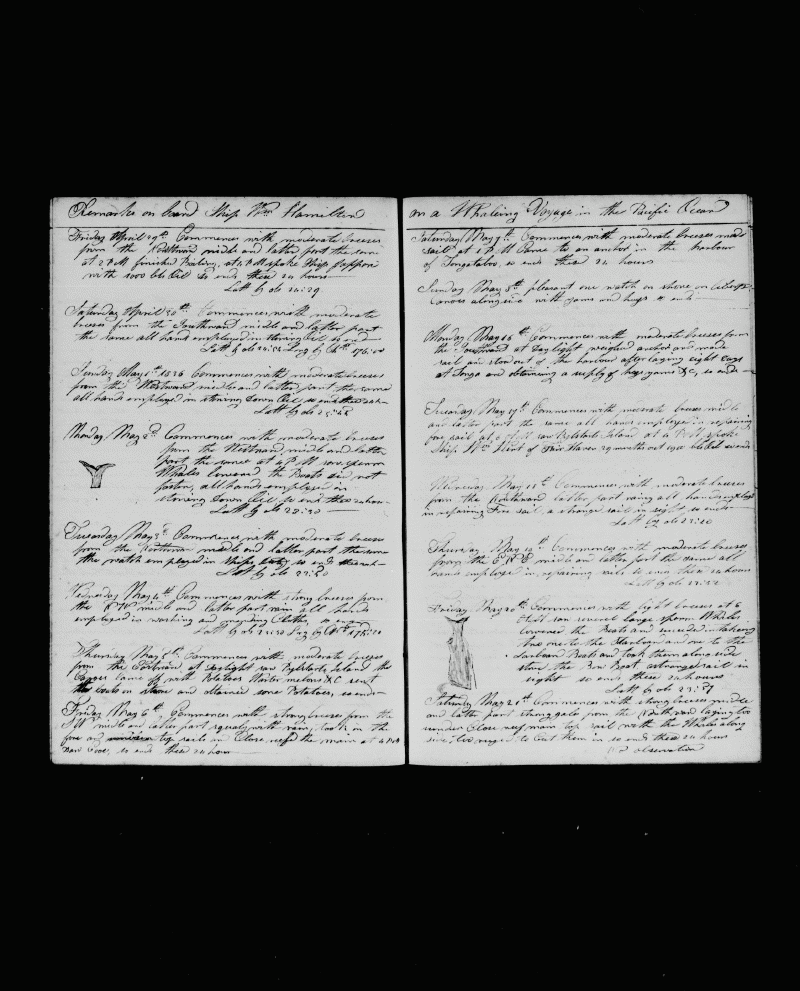 Remarks on board Ship Wm Hamilton
Friday April 29th Commences with moderate breezes
from the Westward midle and latter part the same
at 2 P M finished Boiling, at 4 P M spoke Ship
with 1000 bbls Oil so ends these 24 hours
Latt by ob 24:29
Saturday April 30th Commences with moderate
breeses from the Southward midle and latter part
the same all hands employed in stowing Oil so ends
Latt by ob Lon by Chr
Sunday May 1st 1836 Commences with moderate breeses
from the Westward midle and latter part the same
all hands employed in stowing down Oil so ends these 24h
Latt by ob
Monday May 2d Commences with moderate breeses
from the Westward midle and latter
part the same at 4 P M saw sperm
Whales lowered the Boats did not
fasten, all hands employed in
stowing down Oil so ends these 24 hours
Latt by ob
Tuesday May 3d Commences with moderate breeses
from the Northward midle and latter part the same
the watch employed in Ships duty so ends these 24h
Latt by ob
Wednesday May 4th Commences with strong breeses from
the midle and latter part rain all hands
employed in washing and mending Cloths, so ends
Latt by ob Lon by Chr
Thursday May 5th Commences with moderate breeses
from the Eastward at Daylight saw Rylstarts Island the
Canoes came off with Potatoes Water melons &C sent
the boats on shore and obtained some Potatoes, so ends
Friday May 6th Commences with strong breeses from the
midle and latter part squaly with rain, took in the
fore and top sails in Close reefd the main at 4 P M
saw so ends these 24 hours
on a Whaleing Voyage in the Pacific Ocean
Saturday May 7th Commences with moderate breeses made
sail at P M Came to an anchor in the harbour
of Tongataboo, so ends these 24 hours
Sunday May 8th pleasant one watch on shore on liberty
canoes alongside with yams and hogs so ends
Monday May 16th Commences with moderate breeses from
the Southward at Daylight weighed anchor and made
sail and stood out of the harbour after laying eight days
at Tonga and obtaining a supply of hogs yams &C, so ends
Tuesday May 17th Commences with moderate breeses midle
and latter part the same all hands employed in repairing
fore sail at 6 P M saw Rylstarts Island at 2 P M spoke
Ship Wm of Fair Haven 29 months out bbls oil so ends
Wednesday May 18th Commences with moderate breeses
from the Northward latter part rainy all hands employed
in repairing Fore sail, a strange sail in sight, so ends
Latt by ob 23:20
Thursday May 19th Commences with moderate breeses
from the midle and latter part the same all
hands employed in repairing sails so ends these 24 hours
Latt by ob
Friday May 20th Commences with light breeses at 6
saw several large sperm Whales
lowered the Boats and suceeded in takeing
two one to the Starboar and one to the
Larboar Boats and took them along side
stove the Bow Boat a strange sail in
sight so ends these 24 hours
Latt by ob
Saturday May 21st Commences with strong breeses midle
and latter part strong gale from the Northward laying too
under Close reef main top sail with the Whales along
side, too ruged to Cut them in so ends these 24 hours
No observation